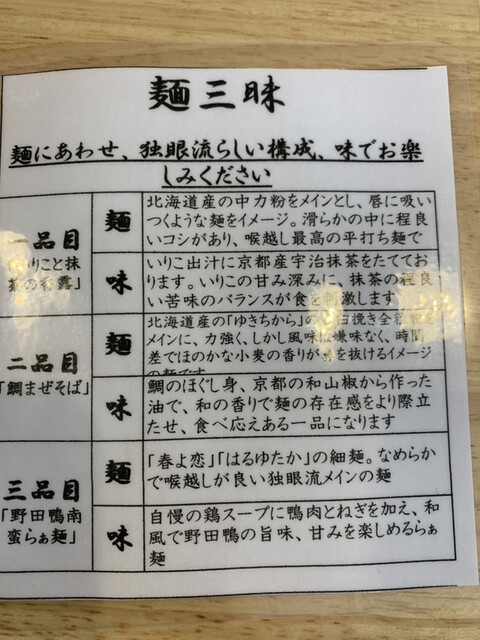 麺三昧
麺にあわせ、独眼流らしい構成、味でお楽
しみください
一品目
いりこと抹
茶の香露」
麺
北海道産の中力粉をメインとし、唇に吸い
つくような麺をイメージ。滑らかの中に程良
いコシがあり、喉越し最高の平打ち麺で
味
いりこ出汁に京都産宇治抹茶をたててお
ります。いりこの甘み深みに、抹茶の程良
い苦味のバランスが食を刺激します
二品目
「鯛まぜそば」
麺
北海道産の「ゆきちから」の 白挽き全粒
メインに、力強く、しかし風味は嫌味なく、時間
差でほのかな小麦の香りが鼻を抜けるイメージ
の麺です
味
鯛のほぐし身、京都の和山椒から作った
油で、和の香りで麺の存在感をより際立
たせ、食べ応えある一品になります
三品目
「野田鴨南
蛮らぁ麺」
麺
「春よ恋」「はるゆたか」の細麺。なめらか
で喉越しが良い独眼流メインの麺
味
自慢の鶏スープに鴨肉とねぎを加え、和
風で野田鴨の旨味、甘みを楽しめるらぁ
麺